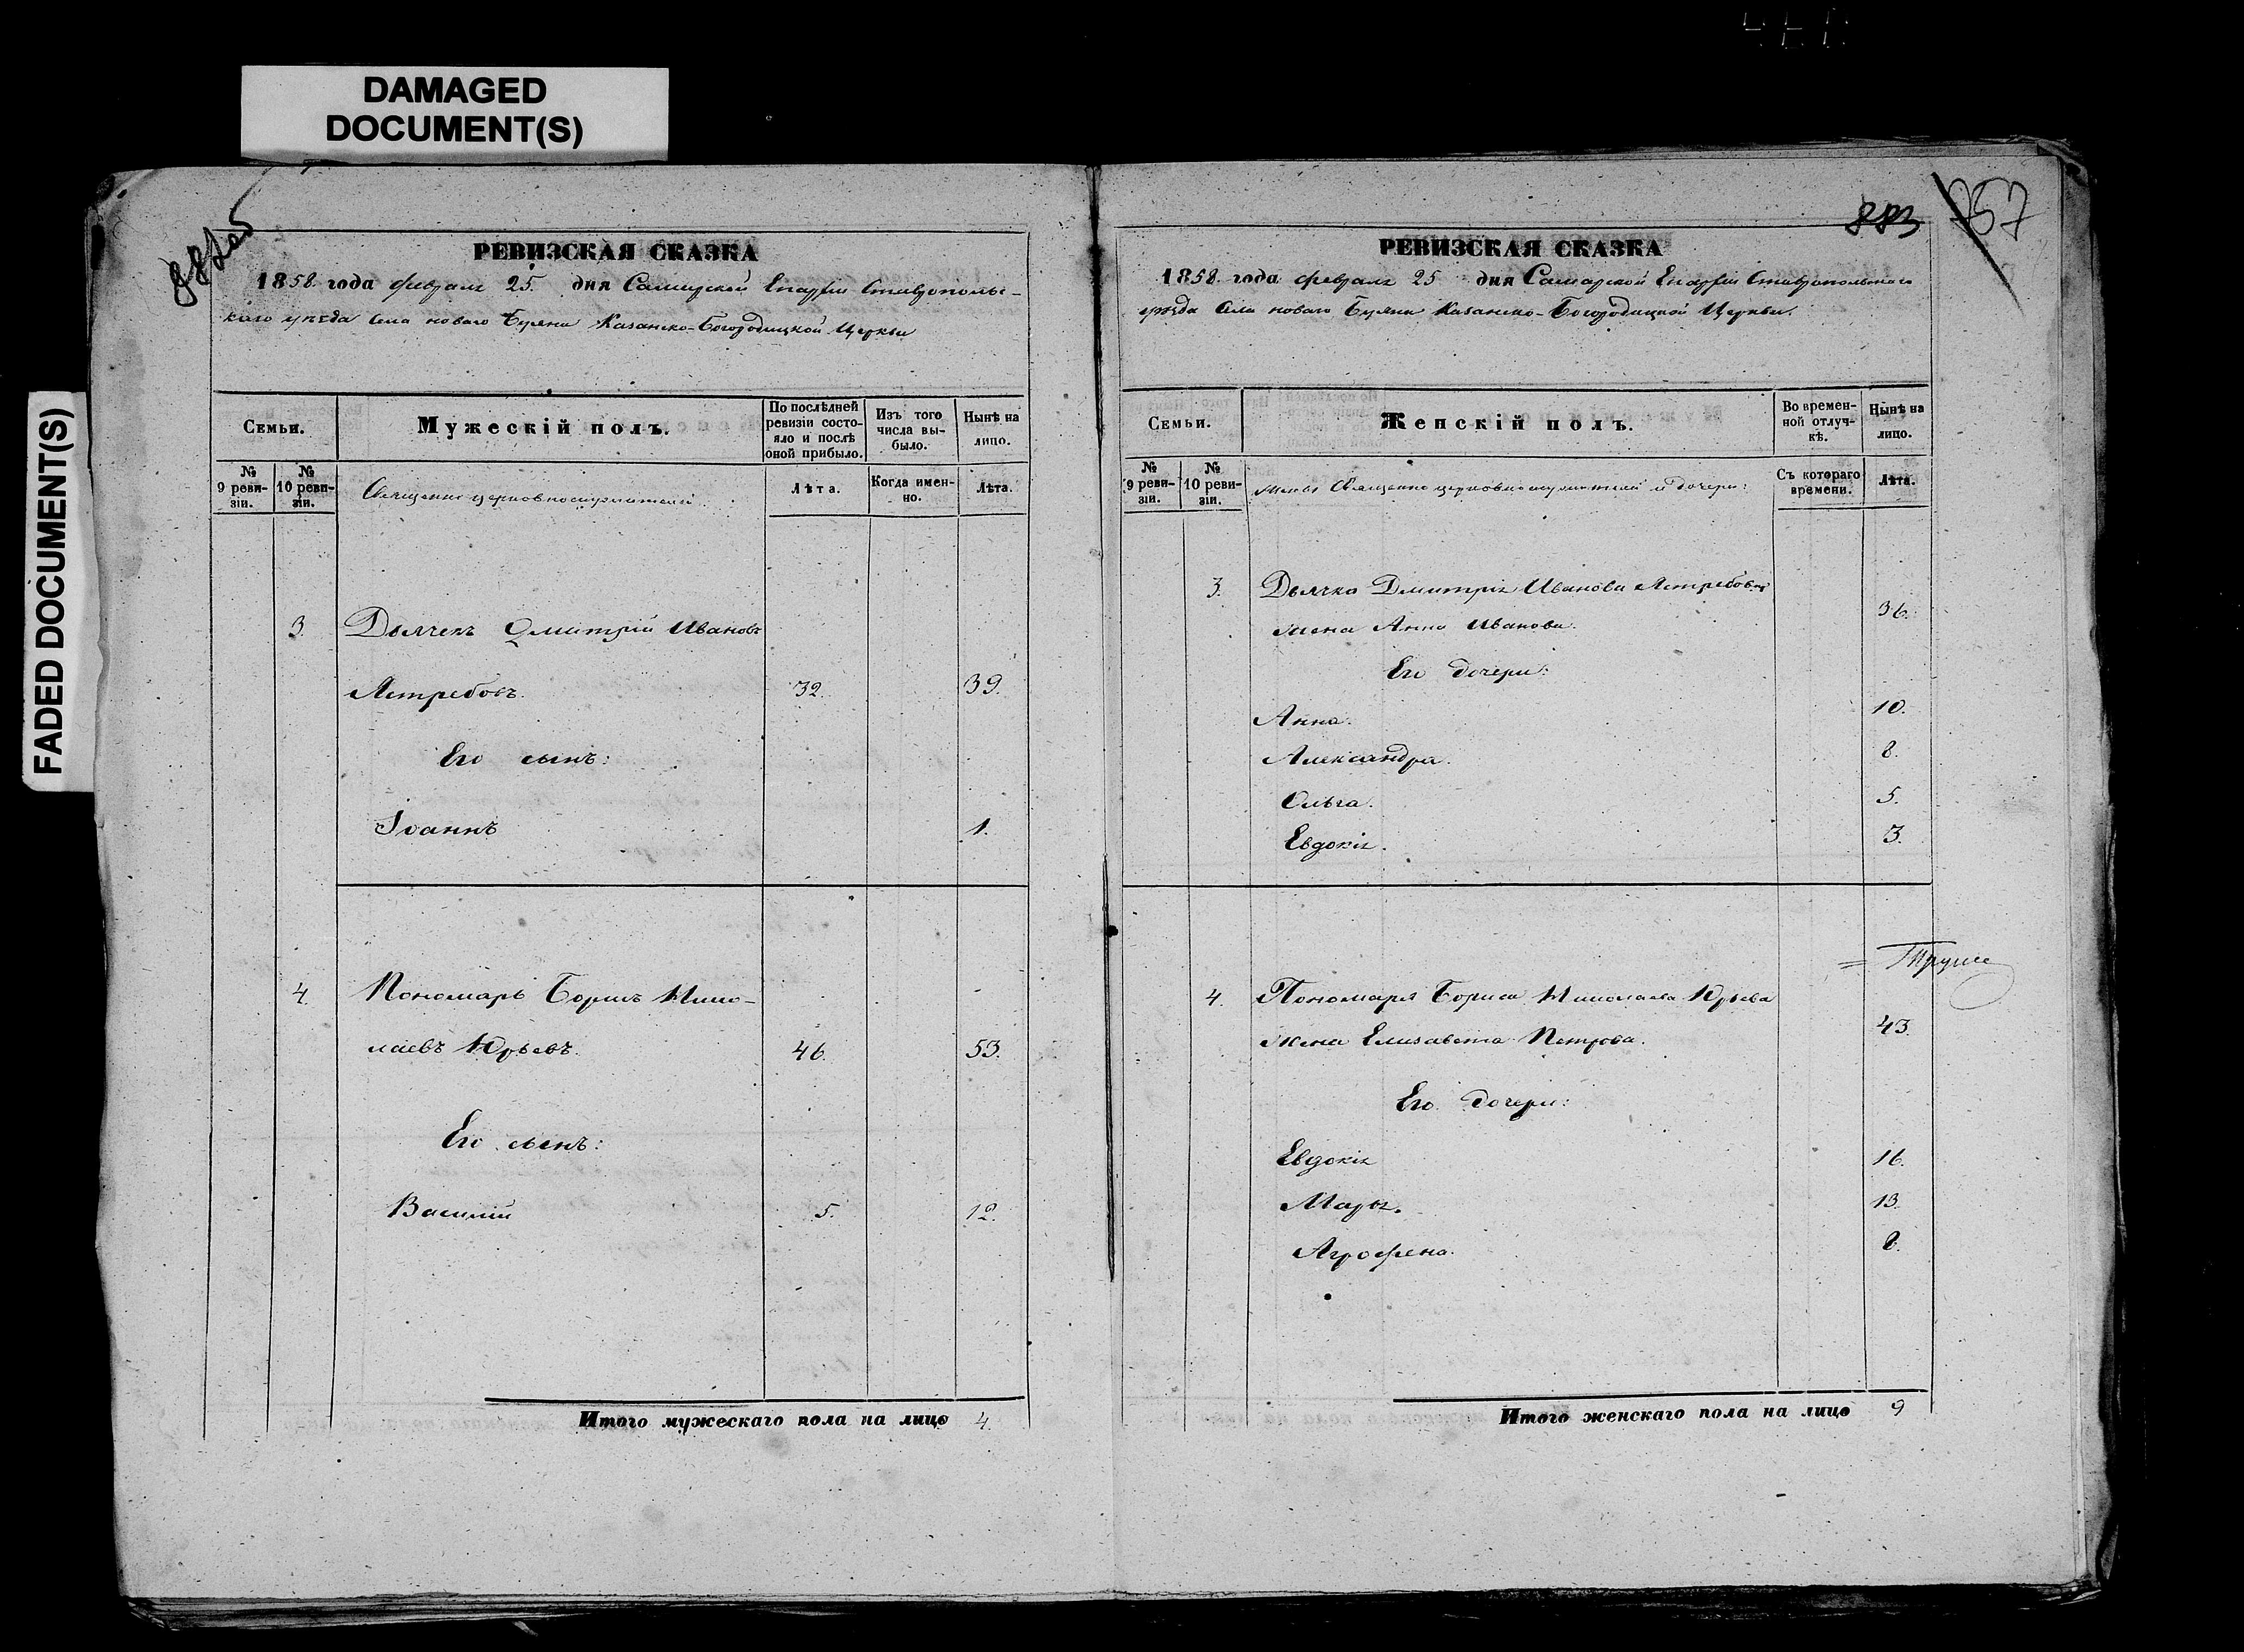 DAMAGED
DOCUMENT(S)
FADED DOCUMENT(S)
РЕВИЗСКАЯ СКАЗКА
1858 года февраля 25 дня Самарской Епархіи Ставрополь-
скаго уѣзда села новаго Буяна Казанско-Богородицкой Церкви
Семьи.
Мужескій полъ.
По послѣдней
ревизіи состо-
яло и послѣ
оной прибыло.
Изъ того
числа вы-
было.
Нынѣ на
лицо.
№
9 реви-
зіи.
№
10 реви-
зіи.
Священно церковнослужители
Лѣта.
Когда имен-
но.
Лѣта.
3. Дьячекъ Дмитрій Ивановъ
Ястребовъ. 32. 39.
Его сынъ:
Іоаннъ 1.
4. Пономарь Борисъ Нико-
лаевъ Юрьевъ. 46. 53.
Его сынъ:
Василій 5. 12.
Итого мужескаго пола на лицо 4.
883
957
РЕВИЗСКАЯ СКАЗКА
1858 года февраля 25 дня Самарской Епархіи Ставропольскаго
уѣзда Села новаго Буяна Казанско-Богородицкой Церкви.
Семьи.
Женскій полъ.
Во времен-
ной отлуч-
кѣ.
Нынѣ на
лицо.
№
9 реви-
зіи.
№
10 реви-
зіи.
Жены Священно церковнослужителей и дочери:
Съ котораго
времени.
Лѣта.
3. Дьячка Дмитрія Иванова Ястребова
жена Анна Иванова. 36.
Его дочери:
Анна. 10.
Александра. 8.
Ольга. 5.
Евдокія. 3.
4. Пономаря Бориса Николаева Юрьева
жена Елизавета Петрова. 43.
Его дочери:
Евдокія 16.
Марья. 13.
Агрофена. 8.
Итого женскаго пола на лицо 9